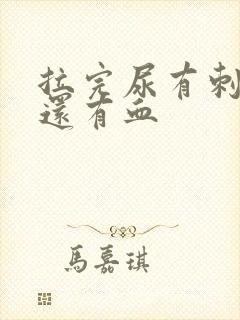 拉完尿有刺
還有血
馬嘉琪